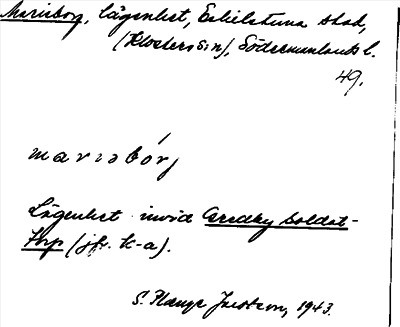 Mariaborg, lägenhet, Eskilstuna stad,
(Kloster sn), Södermanlands l.
49.
marıabór,j
Lägenhet invid Gredby soldat-
torp (jfr. k-a).
S. Hauge Justsson, 1943.